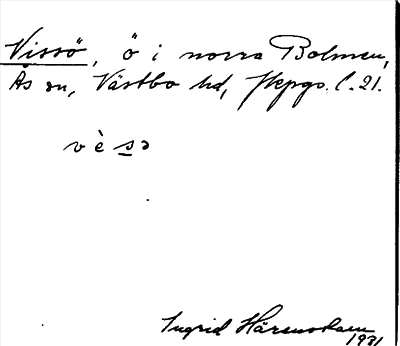 Vissö, ö i norra Bolmen,
Ås sn, Västbo hd, Jkpgs. l. 21.
v è s ə
Ingrid Härenstam
1931